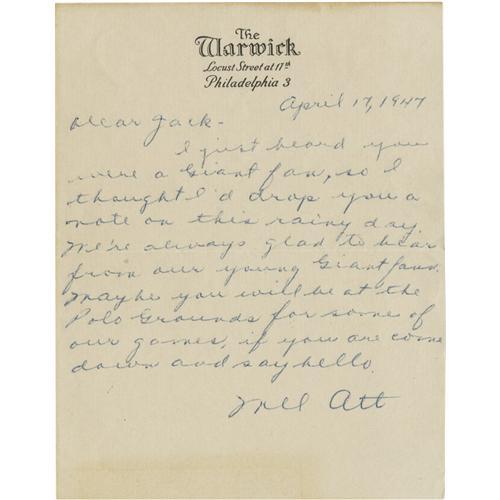 The
Warwick
Locust Street at 17th
Philadelphia 3
April 17, 1947
Dear Jack -
I just heard you
were a Giant fan, so I
thought I'd drop you a
note on this rainy day.
We're always glad to hear
from our young Giant fans.
Maybe you will be at the
Polo Grounds for some of
our games, if you are come
down and say hello.
Mel Ott